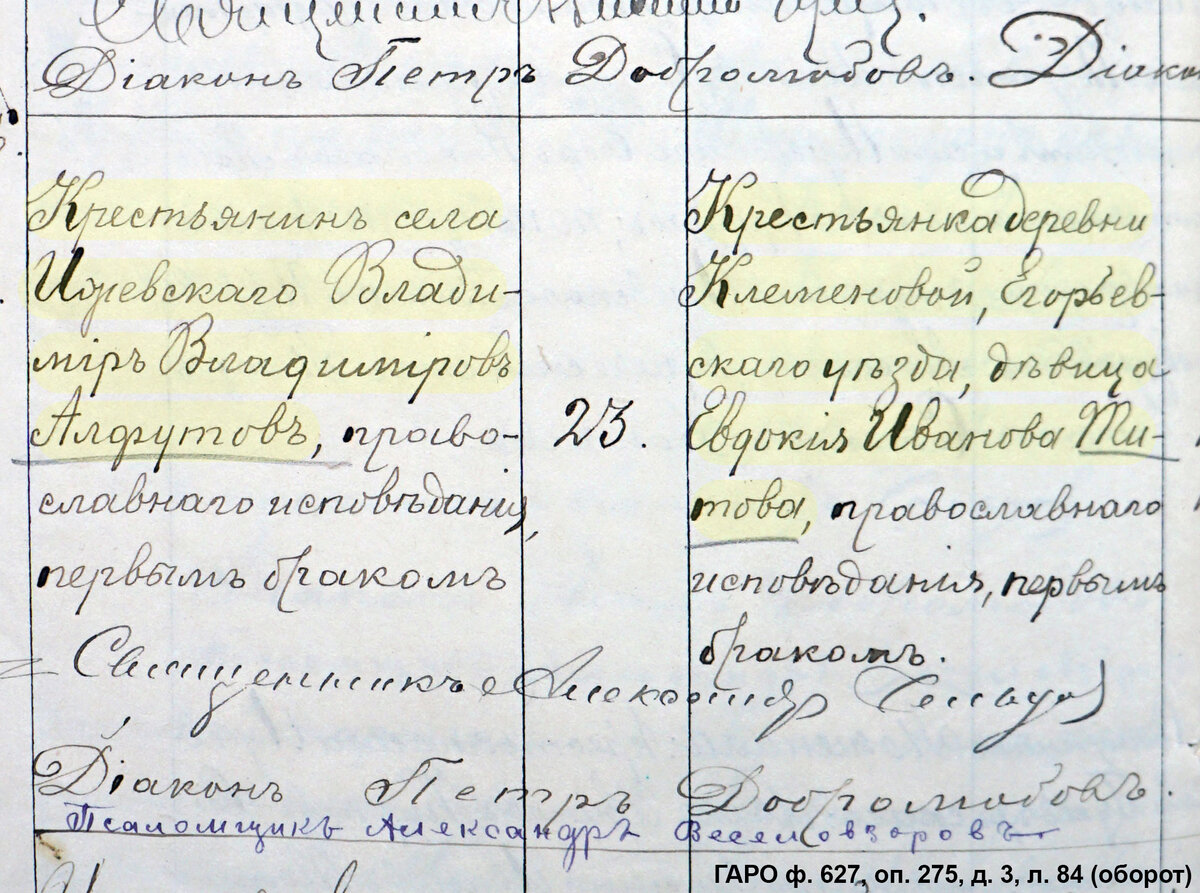 Діаконъ Петръ Добролюбовъ. Діакон
Крестьянинъ села
Ижевскаго Влади-
міръ Владиміровъ
Алфутовъ, право-
славнаго исповѣданія,
первымъ бракомъ
23.
Крестьянка деревни
Клеменовой, Егорьев-
скаго уѣзда, дѣвица
Евдокія Иванова Ти-
това, православнаго
исповѣданія, первымъ
бракомъ.
Священникъ Александр
Діаконъ Петръ Добролюбовъ.
Псаломщикъ Александръ Веселовзоровъ
ГАРО ф. 627, оп. 275, д. 3, л. 84 (оборот)